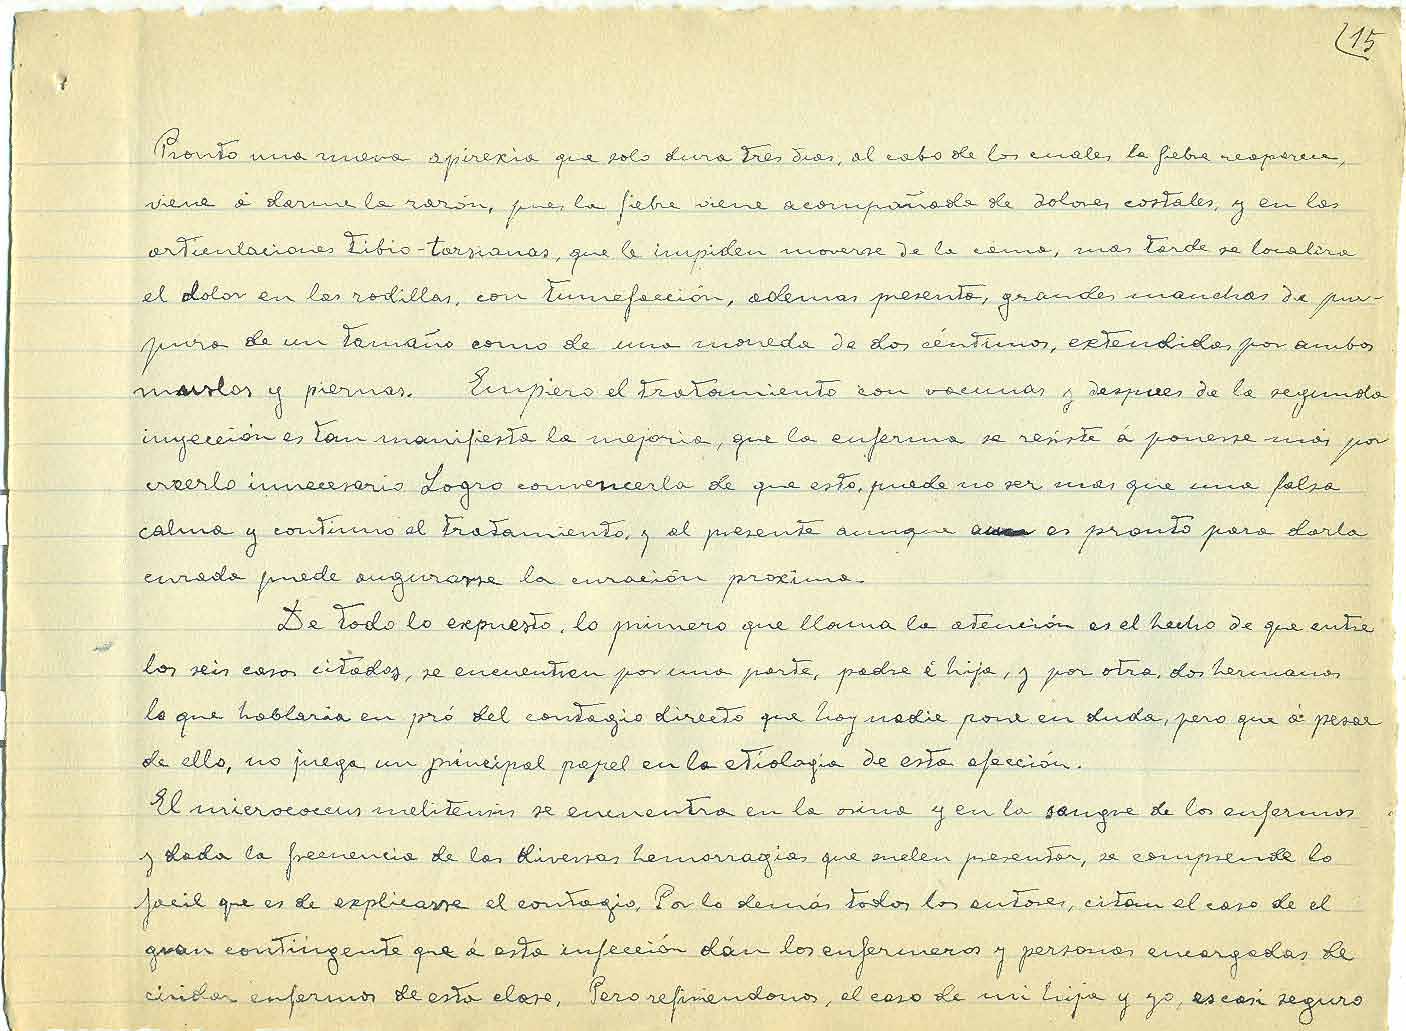 15
Pronto una nueva apirexia que solo dura tres dias, al cabo de los cuales la fiebre reaparece,
viene á darme la razón, pues la fiebre viene acompañada de dolores costales, y en las
articulaciones tibio-tarsianas, que le impiden moverse de la cama, mas tarde se localiza
el dolor en las rodillas, con tumefacción, ademas presenta, grandes manchas de pur-
pura de un tamaño como de una moneda de dos céntimos, extendidas por ambos
muslos y piernas. Empiezo el tratamiento con vacunas y despues de la segunda
inyección es tan manifiesta la mejoria, que la enferma se resiste á ponerse más por
creerlo innecesario Logro convencerla de que esto, puede no ser mas que una falsa
calma y continuo el tratamiento, y al presente aunque es pronto para darla
curada puede augurarse la curación proxima.
De todo lo expuesto, lo primero que llama la atención es el hecho de que entre
los seis casos citados, se encuentren por una parte, padre é hija, y por otra, dos hermanos
lo que hablaria en pró del contagio directo que hoy nadie pone en duda, pero que á pesar
de ello, no juega un principal papel en la etiologia de esta afección.
El micrococcus melitensis se encuentra en la orina y en la sangre de los enfermos
y dada la frecuencia de las diversas hemorragias que suelen presentar, se comprende lo
facil que es de explicarse el contagio. Por lo demás todos los autores, citan el caso de el
gran contingente que á esta infección dán los enfermeros y personas encargadas de
cuidar enfermos de esta clase. Pero refiriendonos, el caso de mi hija y yo, es casi seguro